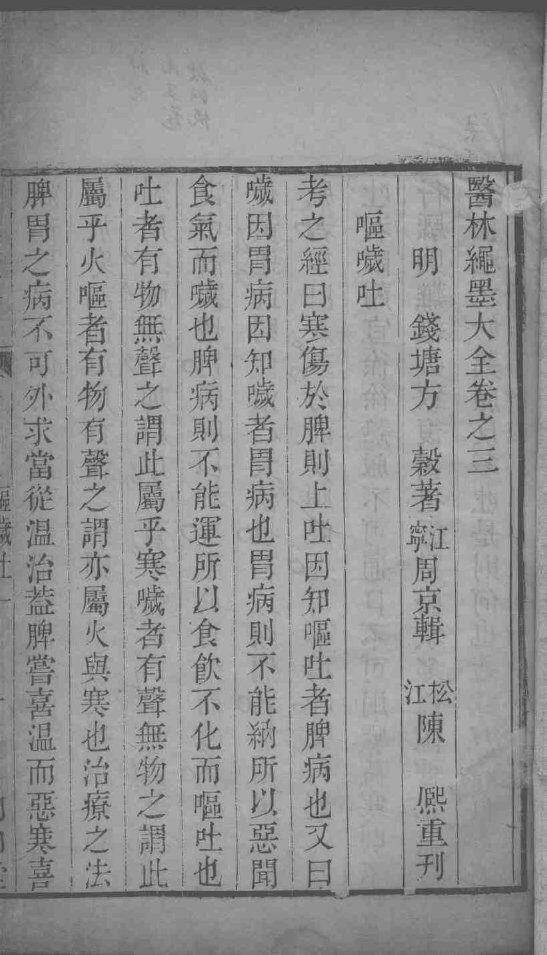 醫林繩墨大全卷之三
明 錢塘方 穀著 江寧周京輯 松江陳 熈重刊
嘔噦吐
考之經曰寒傷於脾則上吐因知嘔吐者脾病也又曰
噦因胃病因知噦者胃病也胃病則不能納所以惡聞
食氣而噦也脾病則不能運所以食飲不化而嘔吐也
吐者有物無聲之謂此屬乎寒噦者有聲無物之謂此
屬乎火嘔者有物有聲之謂亦屬火與寒也治療之法
脾胃之病不可外求當從温治葢脾嘗喜温而惡寒喜